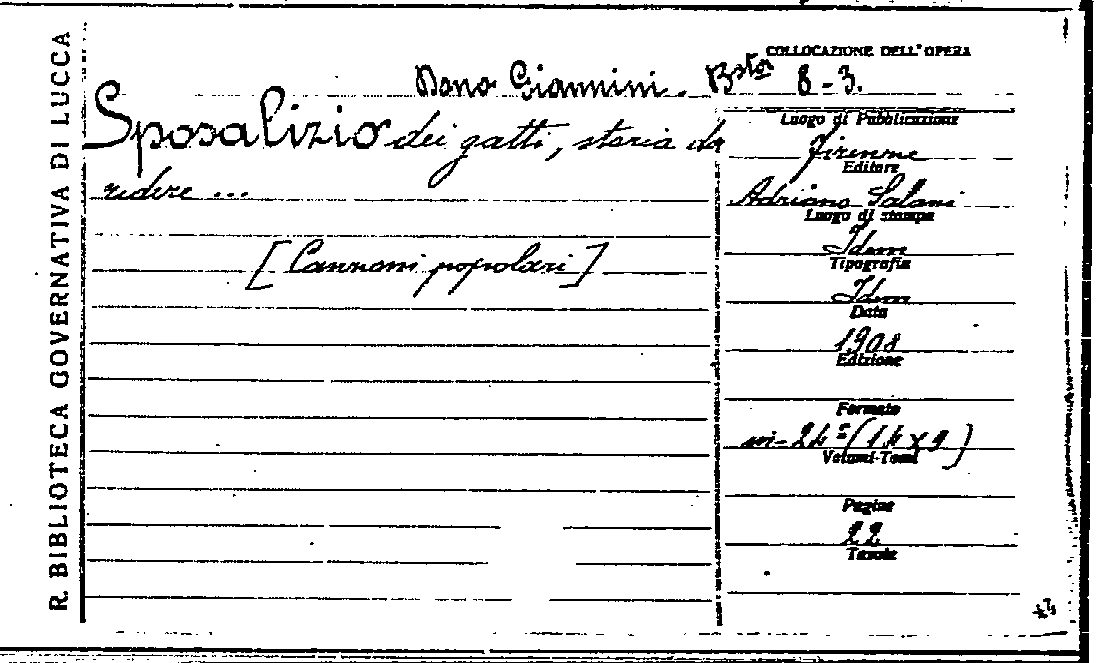 R. BIBLIOTECA GOVERNATIVA DI LUCCA
COLLOCAZIONE DELL'OPERA
Dono Giannini. Bsta 8-3.
Sposalizio dei gatti, storia da
ridere ...
[Canzoni popolari]
Luogo di Pubblicazione
Firenze
Editore
Adriano Salani
Luogo di stampa
Idem
Tipografia
Idem
Data
1908
Edizione
Formato
in-24º (14 x 9)
Volumi-Tomi
Pagine
22
Tavole